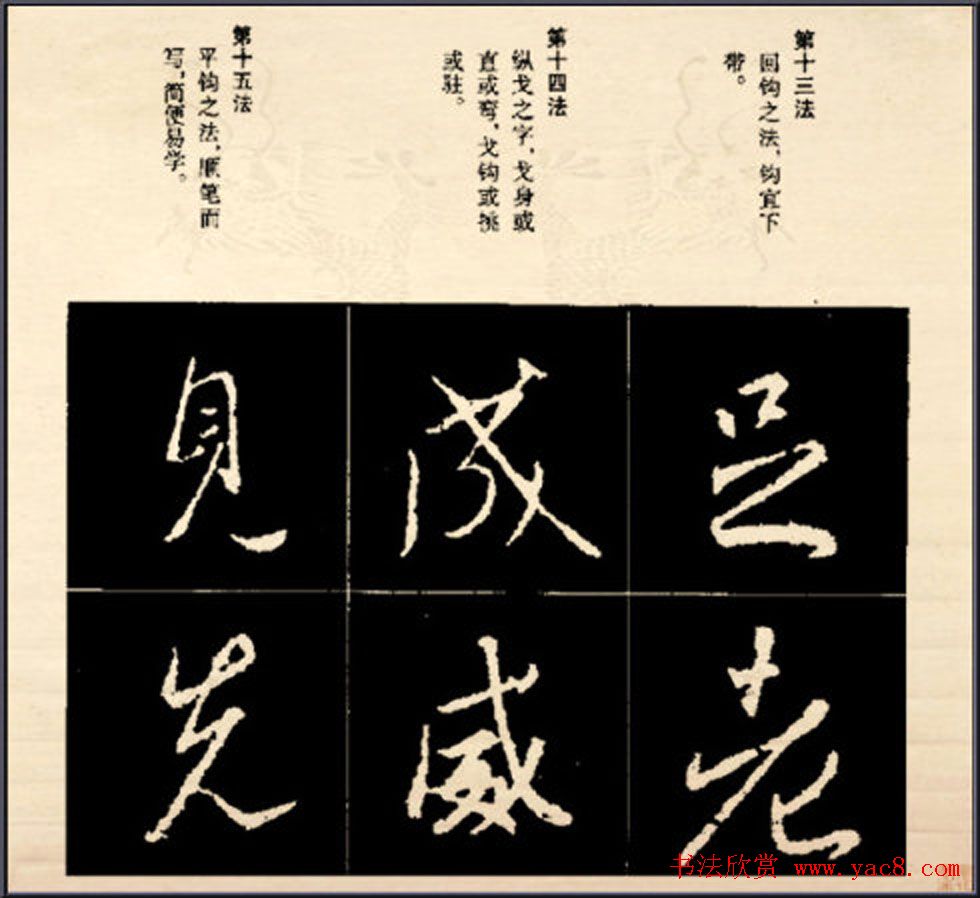 第十三法
回钩之法，钩宜下
带。
第十四法
纵戈之字，戈身或
直或弯，戈钩或挑
或驻。
第十五法
平钩之法，顺笔而
写，简便易学。
老
成
威
見
先
书法欣赏 www.yac8.com